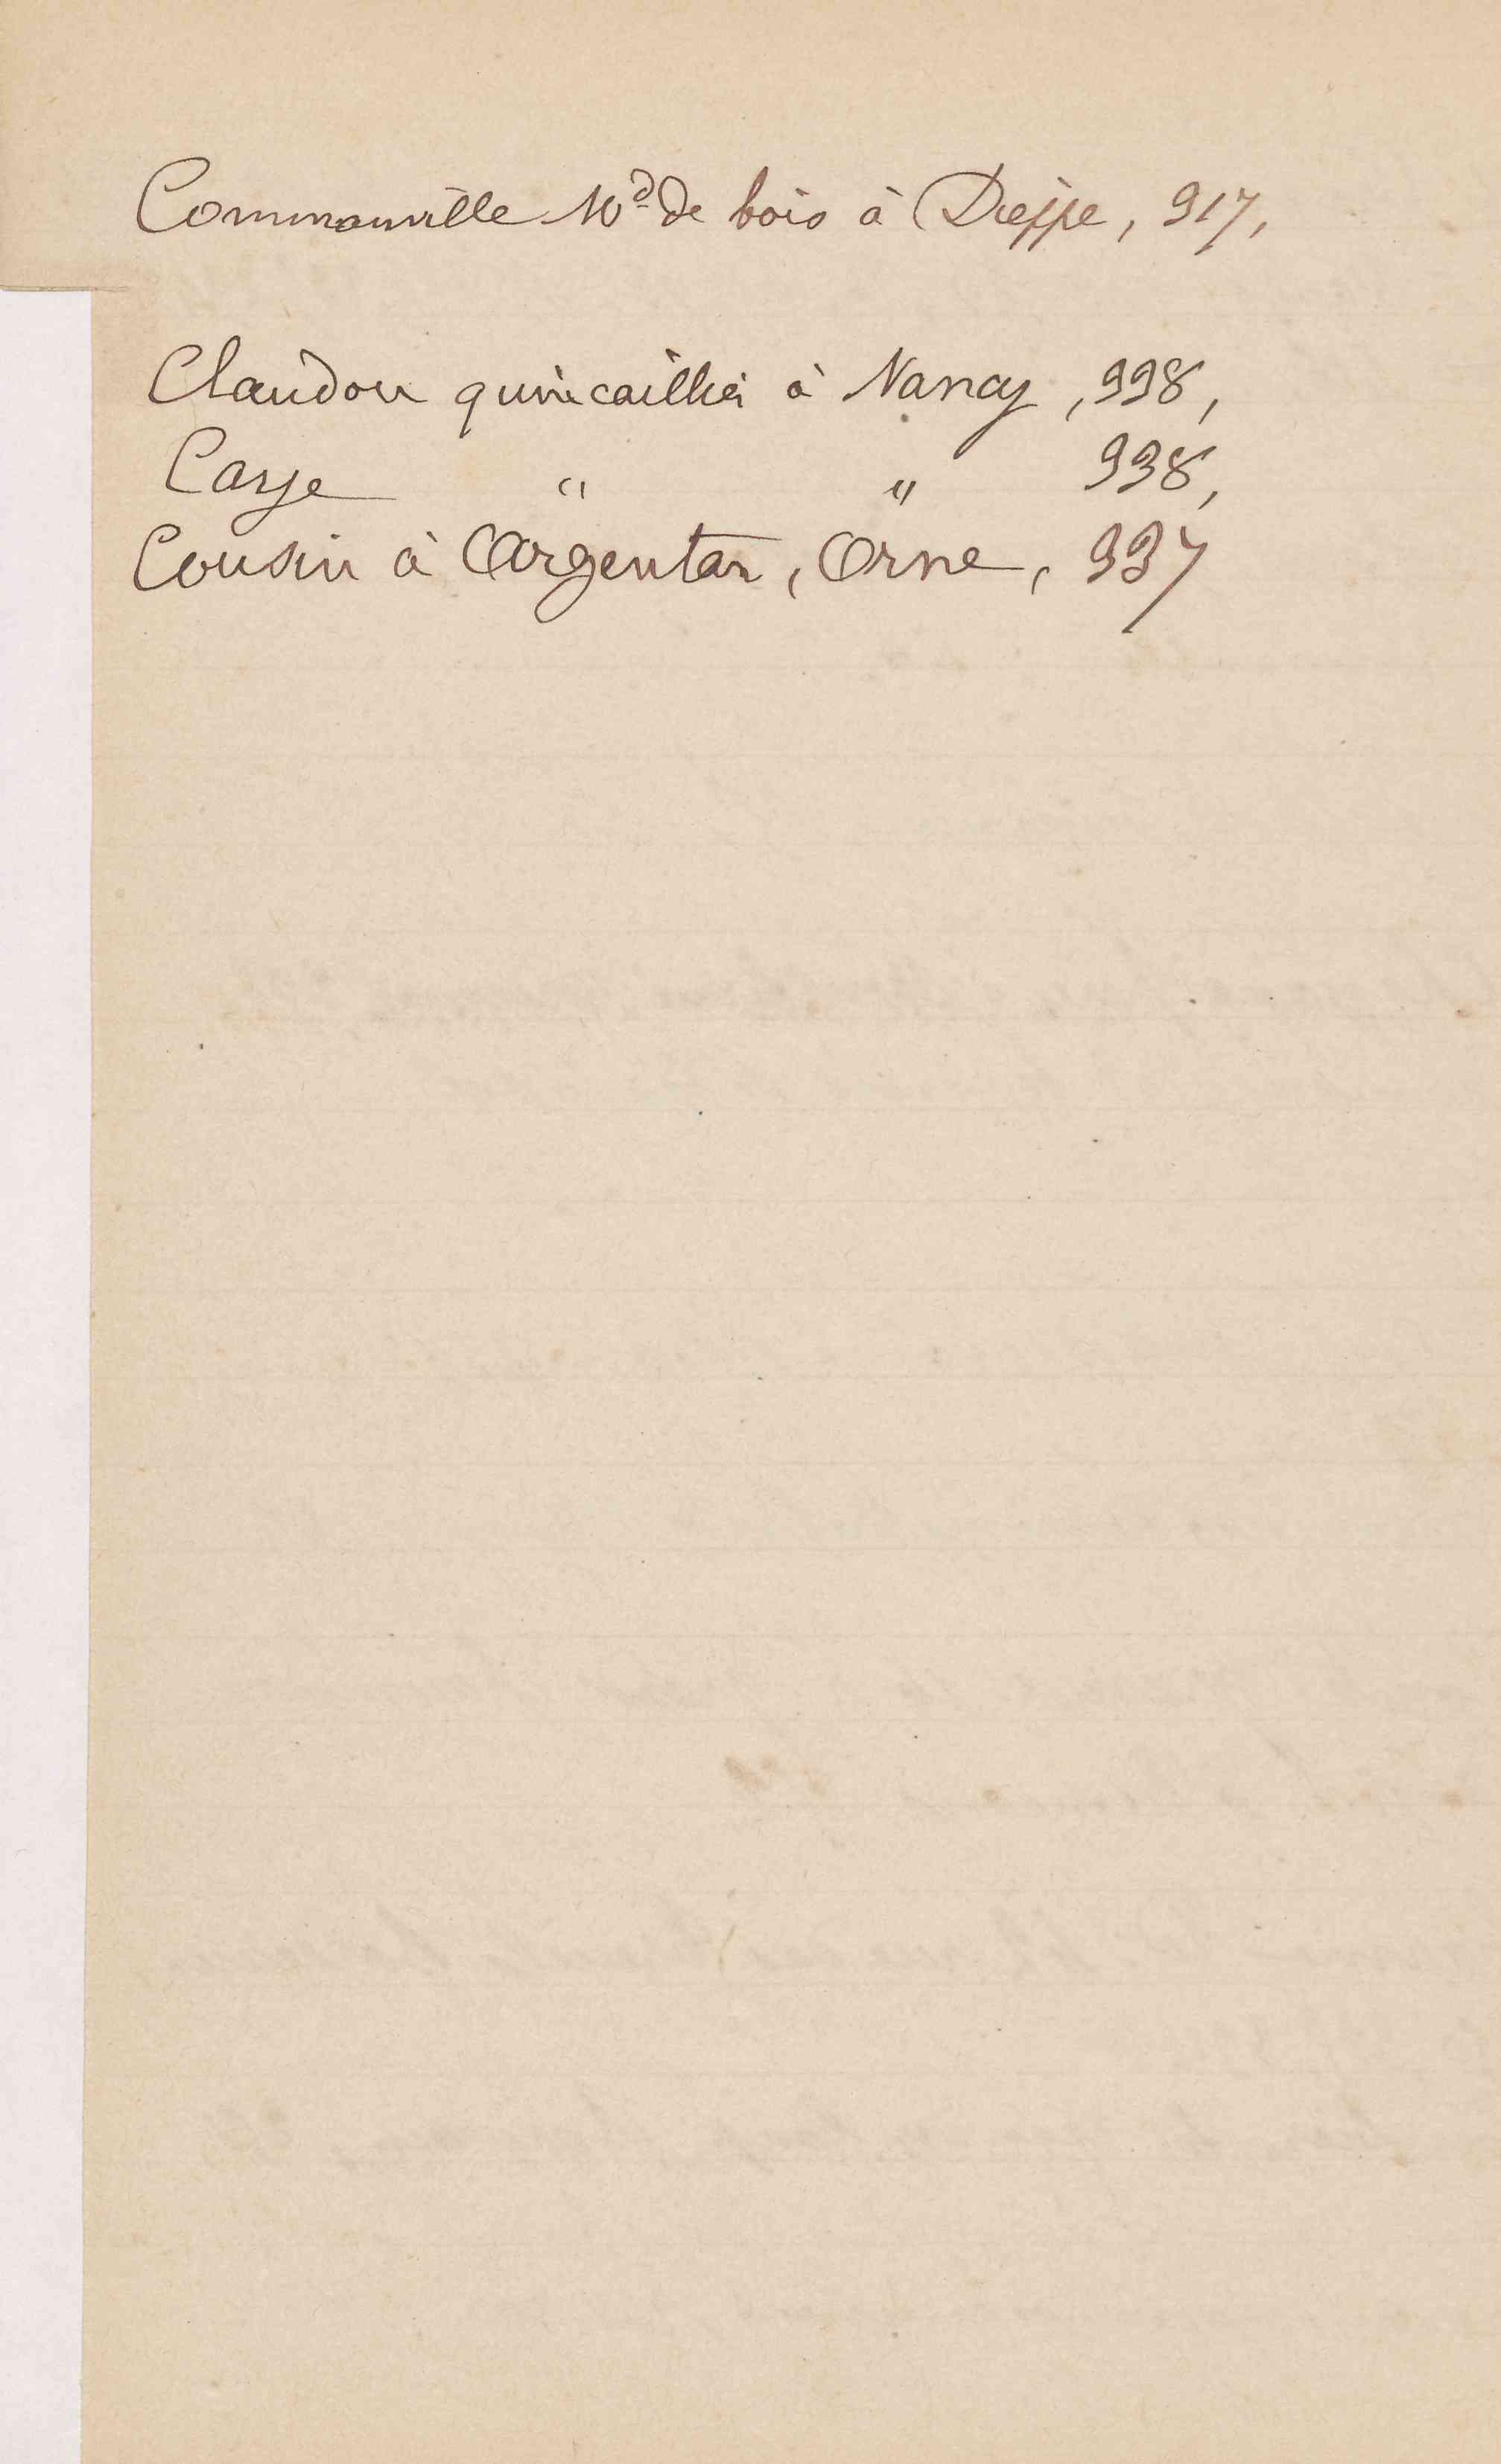 Commanville Md de bois à Dieppe, 917,
Claudon quincaillier à Nancy, 998,
Caye " " 998,
Cousin à Argentan, Orne, 997